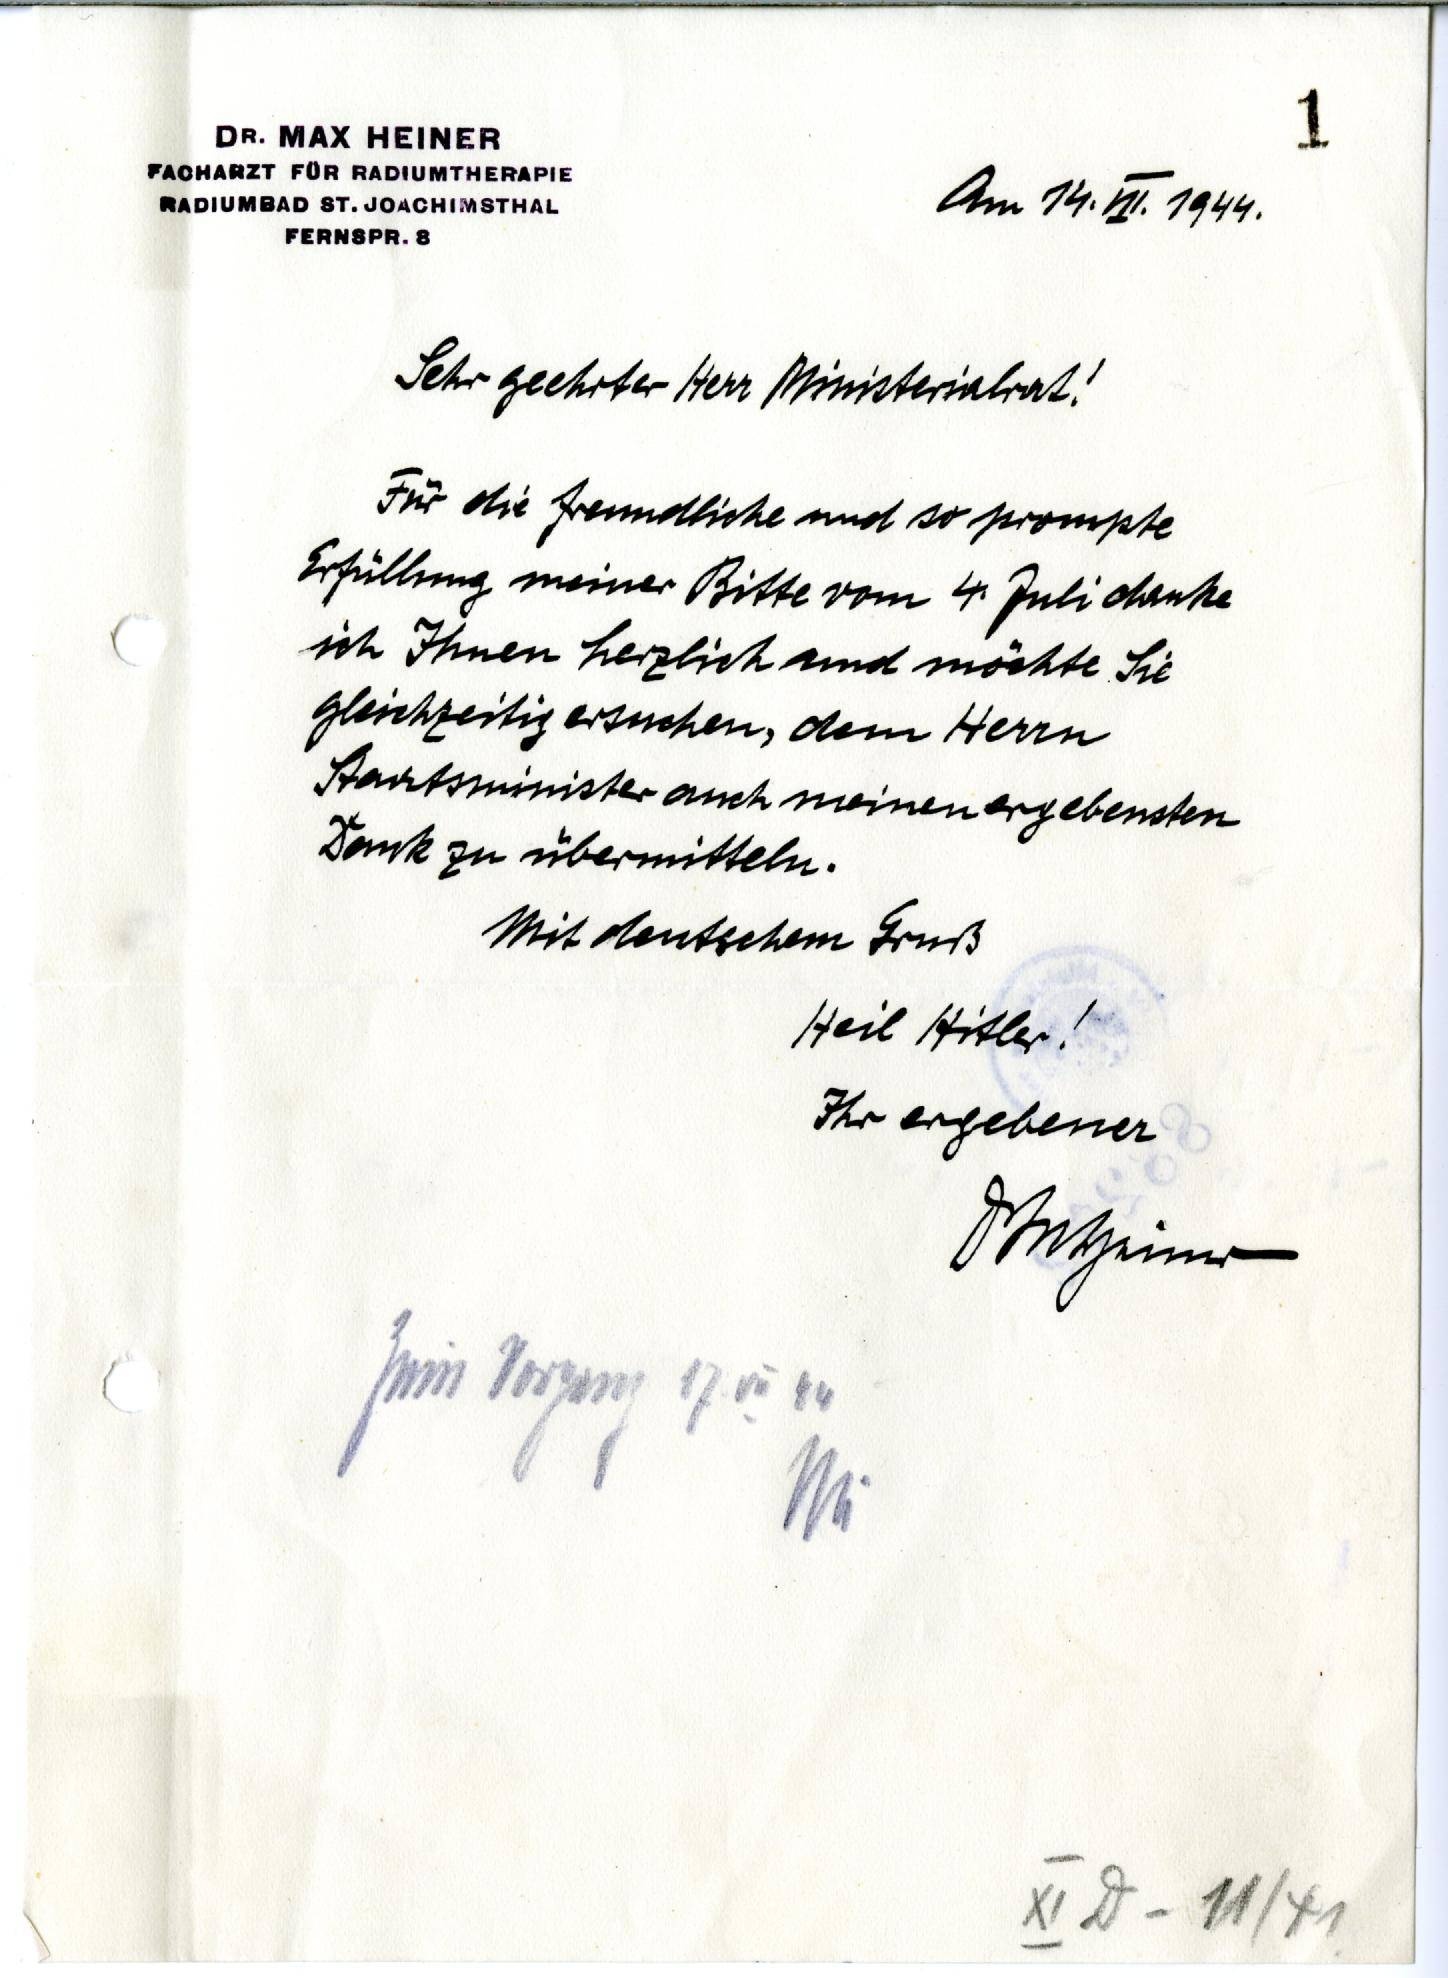 1
DR. MAX HEINER
FACHARZT FÜR RADIUMTHERAPIE
RADIUMBAD ST. JOACHIMSTHAL
FERNSPR. 8
Am 14. VII. 1944.
Sehr geehrter Herr Ministerialrat!
Für die freundliche und so prompte
Erfüllung meiner Bitte vom 4. Juli danke
ich Ihnen herzlich und möchte Sie
gleichzeitig ersuchen, dem Herrn
Staatsminister auch meinen ergebensten
Dank zu übermitteln.
Mit deutschem Gruß
Heil Hitler!
Ihr ergebener
DrMHeiner
Zum Vorgang 17. VII 44
XI D - 11/41